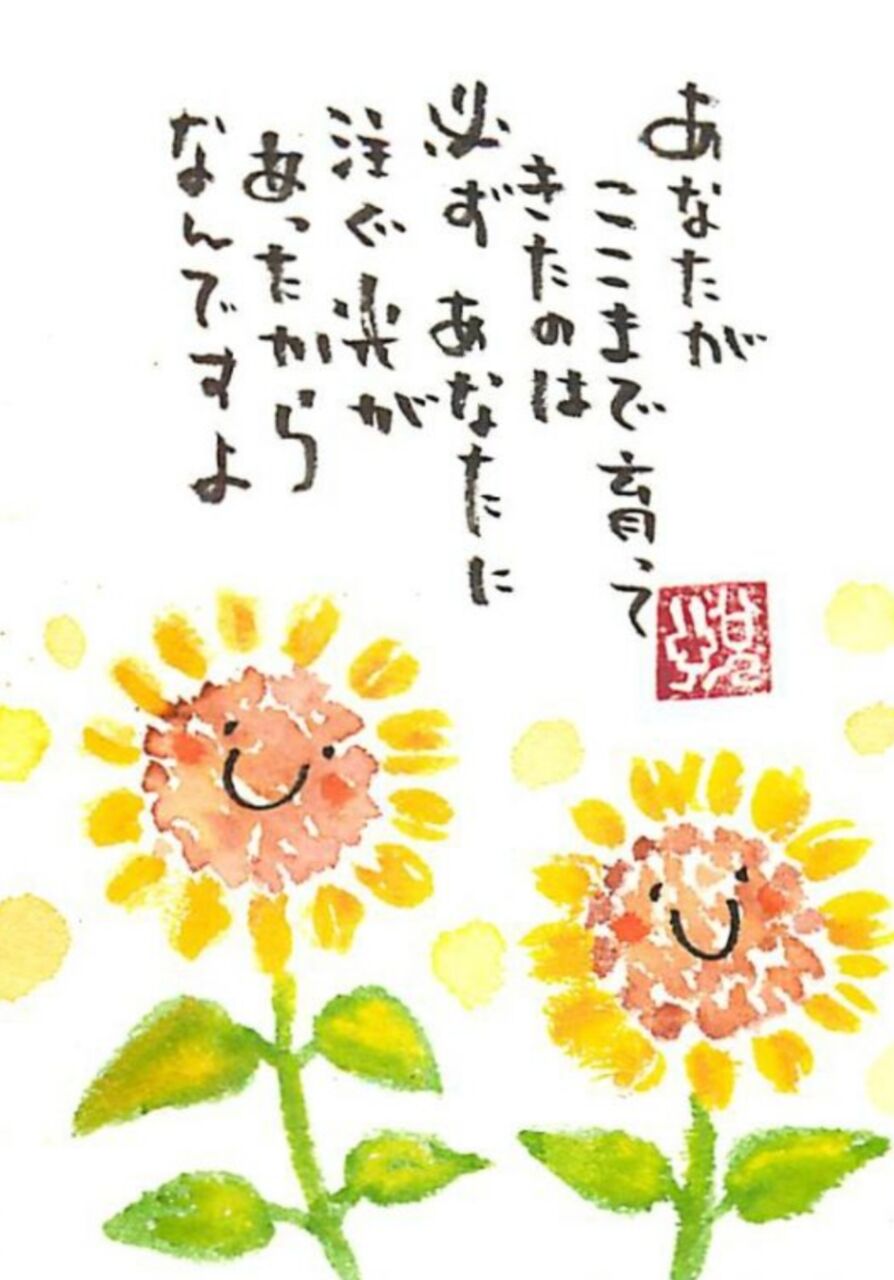 あなたが
ここまで育って
きたのは
必ず あなたに
注ぐ光が
あったから
なんですよ